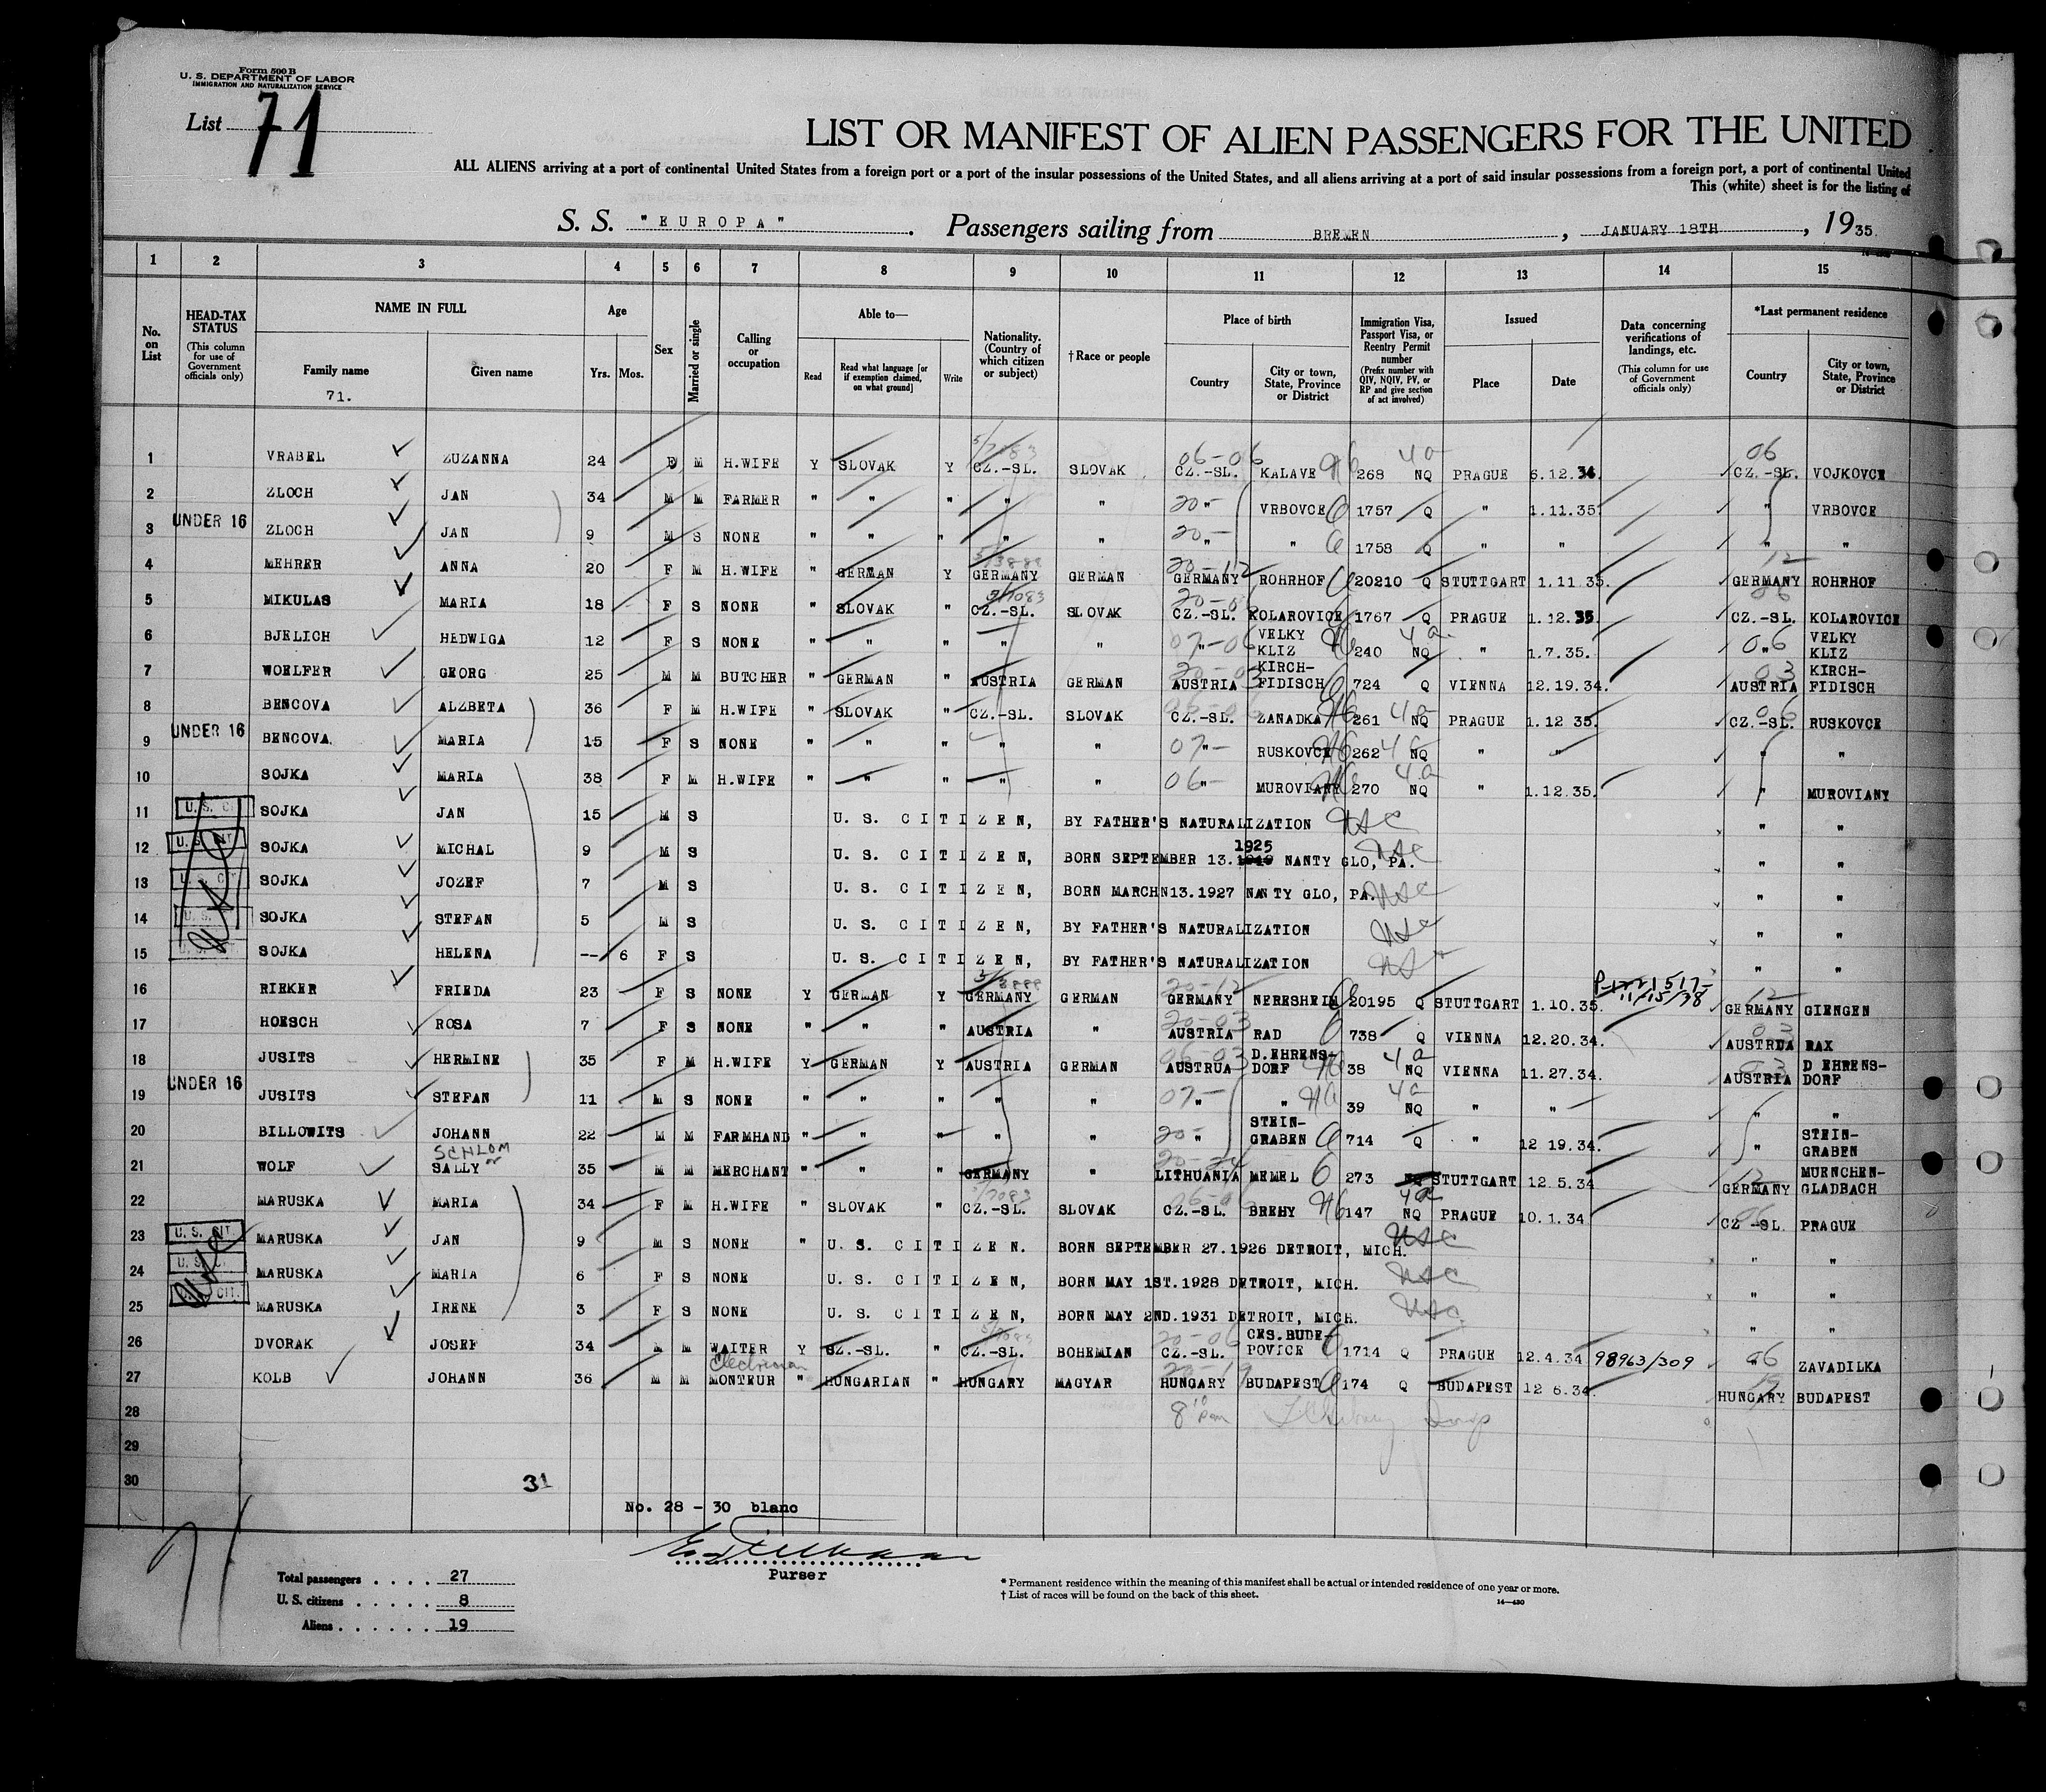 Form 500 B
U. S. DEPARTMENT OF LABOR
IMMIGRATION AND NATURALIZATION SERVICE
List 71
LIST OR MANIFEST OF ALIEN PASSENGERS FOR THE UNITED
ALL ALIENS arriving at a port of continental United States from a foreign port or a port of the insular possessions of the United States, and all aliens arriving at a port of said insular possessions from a foreign port, a port of continental United
This (white) sheet is for the listing of
S. S. "EUROPA". Passengers sailing from BREMEN, JANUARY 18TH, 1935.
1 2 3 4 5 6 7 8 9 10 11 12 13 14 15
No. on List
HEAD-TAX STATUS (This column for use of Government officials only)
NAME IN FULL Family name Given name
71.
Age Yrs. Mos.
Sex
Married or single
Calling or occupation
Able to— Read Read what language [or if exemption claimed, on what ground] Write
Nationality. (Country of which citizen or subject)
†Race or people
Place of birth Country City or town, State, Province or District
Immigration Visa, Passport Visa, or Reentry Permit number (Prefix number with QIV, NQIV, PV, or RP and give section of act involved)
Issued Place Date
Data concerning verifications of landings, etc. (This column for use of Government officials only)
*Last permanent residence Country City or town, State, Province or District
1 VRABEL ZUZANNA 24 M H.WIFE Y SLOVAK Y 5/7083 CZ.-SL. SLOVAK 06-06 CZ.-SL. KALAVE 268 4a NQ PRAGUE 6.12.34. 06 CZ.-SL. VOJKOVCE
2 ZLOCH JAN 34 M M FARMER " " " " " 20- " VRBOVCE 1757 Q " 1.11.35. " VRBOVCE
3 UNDER 16 ZLOCH JAN 9 M S NONE " " " " " 20- " " 1758 Q " " " "
4 MEHRER ANNA 20 F M H.WIFE " GERMAN Y GERMANY GERMAN 20-12 GERMANY ROHRHOF 20210 Q STUTTGART 1.11.35. 12 GERMANY ROHRHOF
5 MIKULAS MARIA 18 F S NONE " SLOVAK " 5/7083 CZ.-SL. SLOVAK 20-06 CZ.-SL. KOLAROVICE 1767 Q PRAGUE 1.12.35. 06 CZ.-SL. KOLAROVICE
6 BJELICH HEDWIGA 12 F S NONE " " " " " 07-06 " VELKY KLIZ 240 4a NQ " 1.7.35. 06 " VELKY KLIZ
7 WOELFER GEORG 25 M M BUTCHER " GERMAN " AUSTRIA GERMAN 20-03 AUSTRIA KIRCH-FIDISCH 724 Q VIENNA 12.19.34. 03 AUSTRIA KIRCH-FIDISCH
8 BENCOVA ALZBETA 36 F M H.WIFE " SLOVAK " CZ.-SL. SLOVAK 06-06 CZ.-SL. ZANADKA 261 4a NQ PRAGUE 1.12 35. 06 CZ.-SL. RUSKOVCE
9 UNDER 16 BENCOVA MARIA 15 F S NONE " " " " " 07- " RUSKOVCE 262 4a NQ " " " "
10 SOJKA MARIA 38 F M H.WIFE " " " " " 06- " MUROVIANY 270 4a NQ " 1.12.35. " MUROVIANY
11 U. S. CIT. SOJKA JAN 15 M S U. S. CITIZEN, BY FATHER'S NATURALIZATION USC " "
12 U. S. CIT. SOJKA MICHAL 9 M S U. S. CITIZEN, BORN SEPTEMBER 13.1925 NANTY GLO, PA. USC " "
13 U. S. CIT. SOJKA JOZEF 7 M S U. S. CITIZEN, BORN MARCHN13.1927 NANTY GLO, PA. USC " "
14 U. S. SOJKA STEFAN 5 M S U. S. CITIZEN, BY FATHER'S NATURALIZATION USC " "
15 SOJKA HELENA -- 6 F S U. S. CITIZEN, BY FATHER'S NATURALIZATION USC " "
16 RIEKER FRIEDA 23 F S NONE Y GERMAN Y GERMANY GERMAN 20-12 GERMANY NERESHEIM 20195 Q STUTTGART 1.10.35 11/15/38 12 GERMANY GIENGEN
17 HOESCH ROSA 7 F S NONE " " " AUSTRIA " 20-03 AUSTRIA RAD 738 Q VIENNA 12.20.34. 03 AUSTRDA RAX
18 JUSITS HERMINE 35 F M H.WIFE Y GERMAN Y AUSTRIA GERMAN 06-03 AUSTRUA D.EHRENS-DORF 38 4a NQ VIENNA 11.27.34. 03 AUSTRIA D EHRENS-DORF
19 UNDER 16 JUSITS STEFAN 11 M S NONE " " " " " 07- " " 39 4a NQ " " " "
20 BILLOWITS JOHANN 22 M M FARMHAND " " " " " 20- " STEIN-GRABEN 714 Q " 12 19.34. " STEIN-GRABEN
21 WOLF SCHLOM or SALLY 35 M M MERCHANT " " " GERMANY " LITHUANIA MEMEL 273 STUTTGART 12.5.34 12 GERMANY MUENCHEN-GLADBACH
22 MARUSKA MARIA 34 F M H.WIFE " SLOVAK " 5/7083 CZ.-SL. SLOVAK 06-06 CZ.-SL. BREHY 147 4a NQ PRAGUE 10.1.34 06 CZ -SL PRAGUE
23 U. S. CIT. MARUSKA JAN 9 M S NONE " U. S. CITIZEN. BORN SEPTEMBER 27.1926 DETROIT, MICH. USC " "
24 U. S. MARUSKA MARIA 6 F S NONE U. S. CITIZEN, BORN MAY 1ST.1928 DETROIT, MICH. USC " "
25 CIT. MARUSKA IRENE 3 F S NONE U. S. CITIZEN, BORN MAY 2ND.1931 DETROIT, MICH. USC " "
26 DVORAK JOSEF 34 M M WAITER Y CZ.-SL. " CZ.-SL. BOHEMIAN 20-06 CZ.-SL. CES.BUDE-POVICE 1714 Q PRAGUE 12.4.34 98963/309 06 " ZAVADILKA
27 KOLB JOHANN 36 M M Electrician MONTEUR " HUNGARIAN " HUNGARY MAGYAR 20-19 HUNGARY BUDAPEST 174 Q BUDAPEST 12 6.34. 19 HUNGARY BUDAPEST
28 8 10 pm
29
30
31
No. 28 - 30 blanc
Purser
71
Total passengers . . . . 27
U. S. citizens . . . . . 8
Aliens . . . . . . 19
* Permanent residence within the meaning of this manifest shall be actual or intended residence of one year or more.
† List of races will be found on the back of this sheet.
14—430